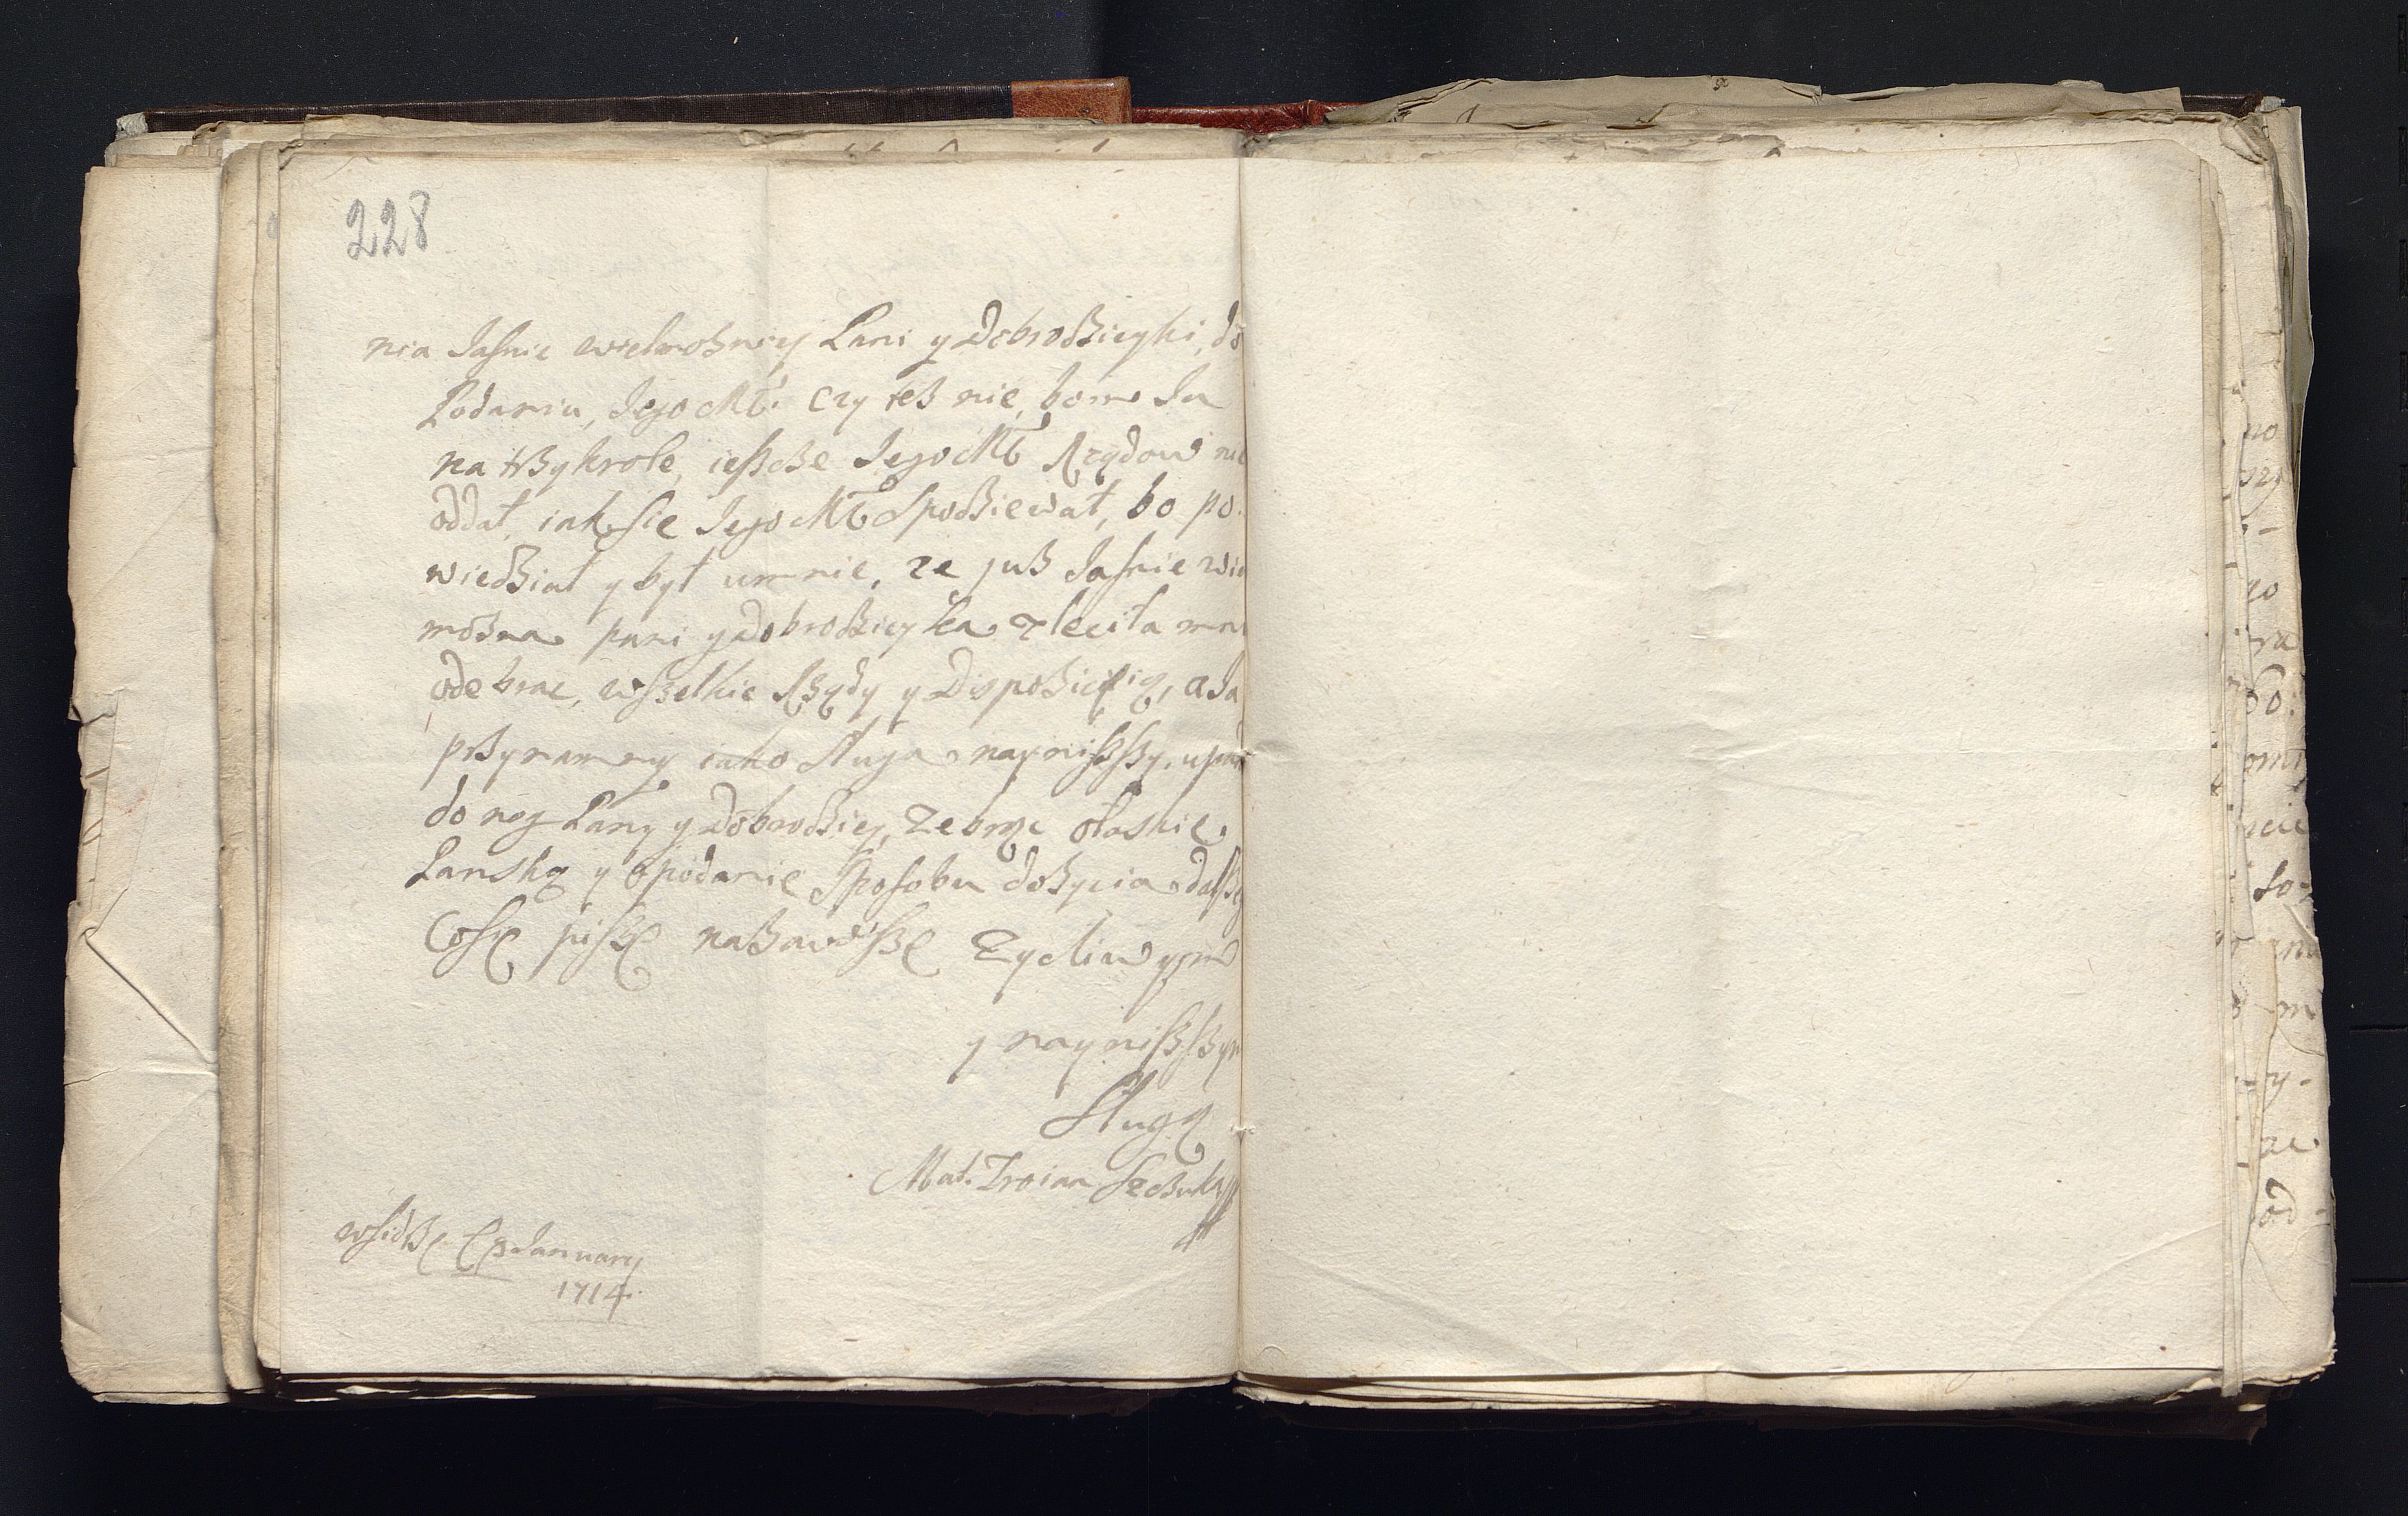 228
nia Jasnie wielmożney Pani y Dobrodzieyki, do
Podaniu, Jego Mł. czy też nie, bom Ja
na trzykrole, ieszcze Jego Mł Rządow nie
oddał, iak sie Jego Mł Spodziewał, bo po-
wiedział y był umnie, ze już Jasnie wie
można pani y dobrodzieyka zleciła mn
odebrac, wszelkie Rządy y Dispozicią, a Ja
przynamny iako sługa nayniszszy, upa
do nog Pany y Dobrodziey, zebrąc ołaskie
Panską y opodanie Sposobu dożycia dalsze
Coſę piszę nazawsze Zycliwym
y nayniszszym
Sługą
Mat. Troian
January
1714.